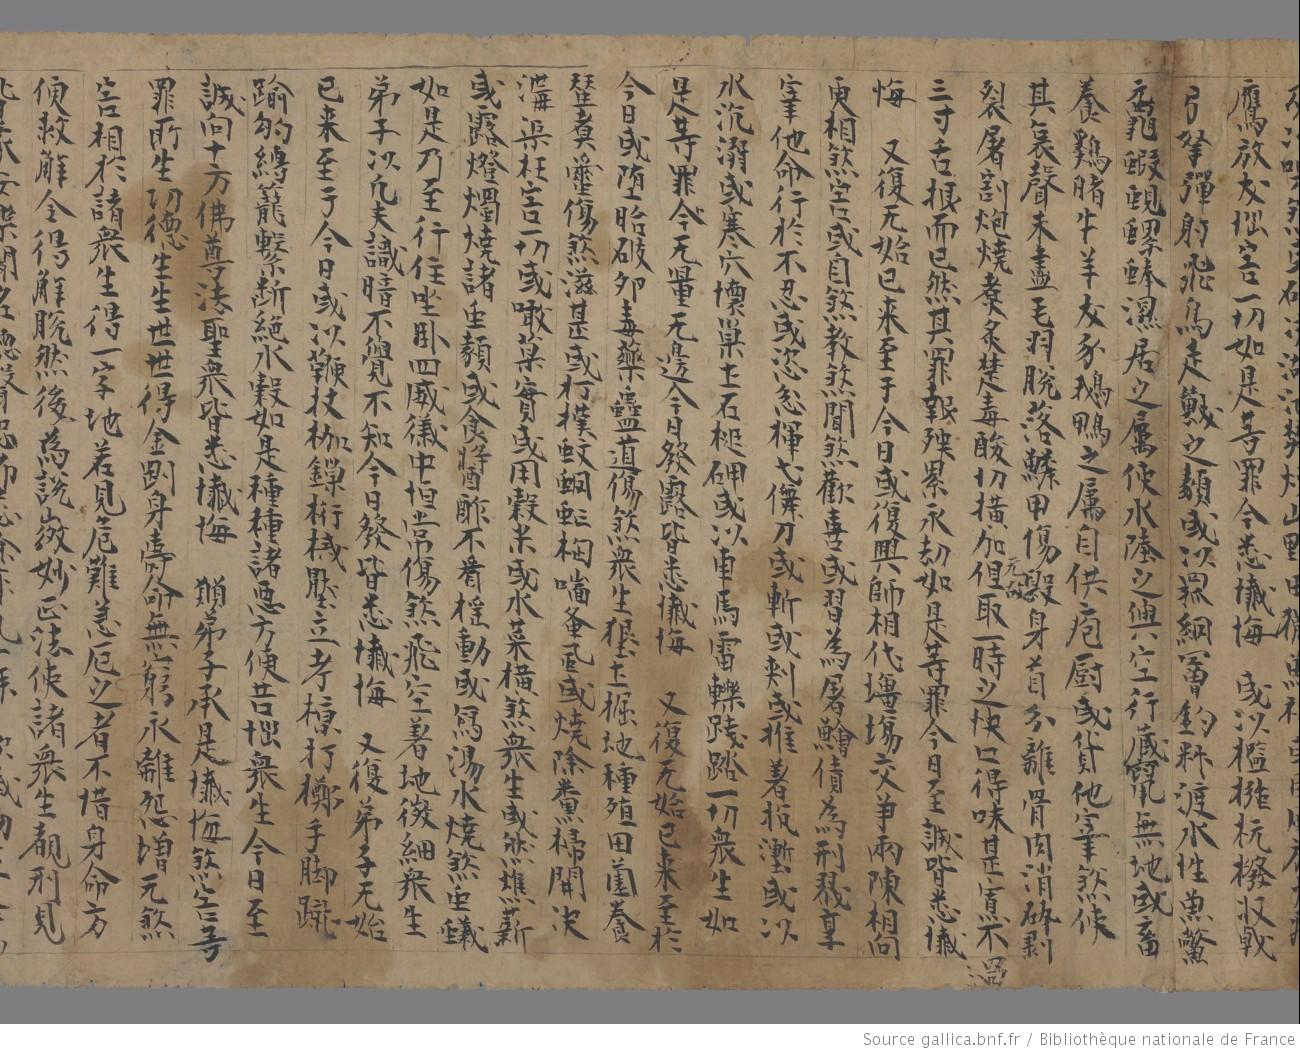 鷹放犬惱害一切如是等罪今悉懺悔 或以檻㩙杭撥扠戟
弓弩彈射飛鳥走獸之類或以罟網罾釣料漉水性魚鱉
黿鼉蝦蜆螺蚌濕居之屬使水陸之與空行藏竄無地或畜
養鷄䐗牛羊犬豕鵝鴨之屬自供庖厨或貨他宰煞使
其哀聲未盡毛羽脫落鱗甲傷毀身首分離骨肉消碎剥
裂屠割炮燒煮炙楚毒酸切橫加无辜但取一時之快口得味甚寡不過
三寸舌根而已然其罪報殃累永劫如是等罪今日至誠皆悉懺
悔 又復无始已來至于今日或復興師相代壃場交争兩陳相向
更相煞害或自煞教煞聞煞歡喜或習為屠鱠債為刑戮烹
宰他命行於不忍或恣忿揮戈儛刀或斬或刺或推著坑塹或以
水沉溺或塞穴壞巢土石槌碑或以車馬雷轢踐踏一切衆生如
是等罪今无量无邊今日發露皆悉懺悔 又復无始已來至於
今日或堕胎破夘毒藥蠱道傷煞衆生墾土掘地種殖田園養
蠶煮蠒傷煞滋甚或打撲蚊蝄蚟掏嚙蚤虱或燒除糞掃開决
溝渠枉害一切或噉菓實或用穀米或水菜横煞衆生或然樵薪
或露燈燭燒諸虫類或食將酉酢不看摇動或寫湯水燒煞虫蟻
如是乃至行住坐卧四威儀中恒常傷煞飛空著地微細衆生
弟子以凢夫識暗不覺不知今日發皆悉懺悔 又復弟子无始
已来至于今日或以鞭杖枷鏁桁械壓拉考掠打擲手脚蹴
踰拘縛籠繫断絶水穀如是種種諸惡方便苦惱衆生今日至
誠向十方佛尊法聖衆皆悉懺悔 願弟子承是懺悔煞害等
罪所生功德生生世世得金剛身壽命無窮永離怨憎元煞
害相於諸衆生得一子地若見危難急厄之者不惜身命方
便救解令得解脫然後為說微妙正法使諸衆生覩形見